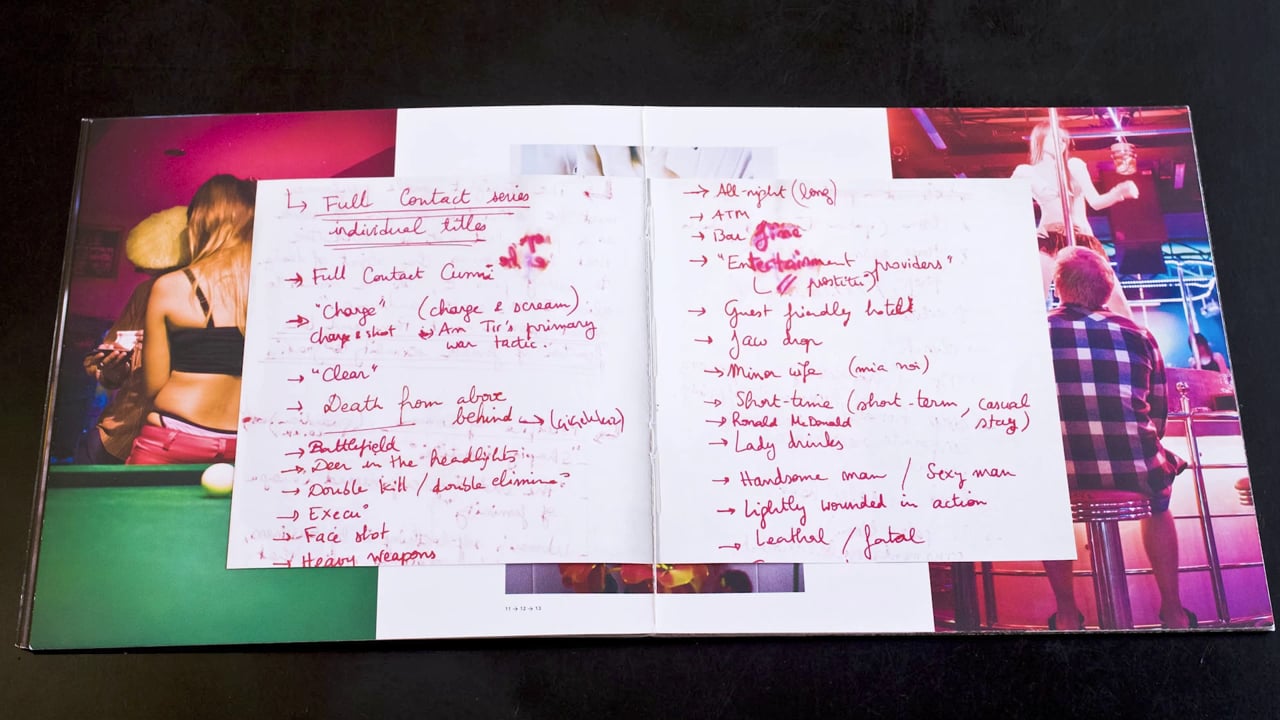 Full Contact series
individual titles
→ Full Contact
→ "Charge" (charge & scream)
charge & shot ↳ Am Tir's primary
war tactic.
→ "Clear"
→ Death from above
behind →
→ Battlefield
→ Deer in the headlights
→ Double kill / double
→ Execu
→ Face shot
→ Heavy weapons
→ All-right (long)
→ ATM
→ Bar fine
→ "Entertainment providers"
→ Guest friendly hotel
→ Jaw drop
→ Minor wife (mia noi)
→ Short-time (short-term, casual
stay)
→ Ronald McDonald
→ Lady drinks
→ Handsome man / Sexy man
→ Lightly wounded in action
→ Leathal / fatal
11 → 12 → 13